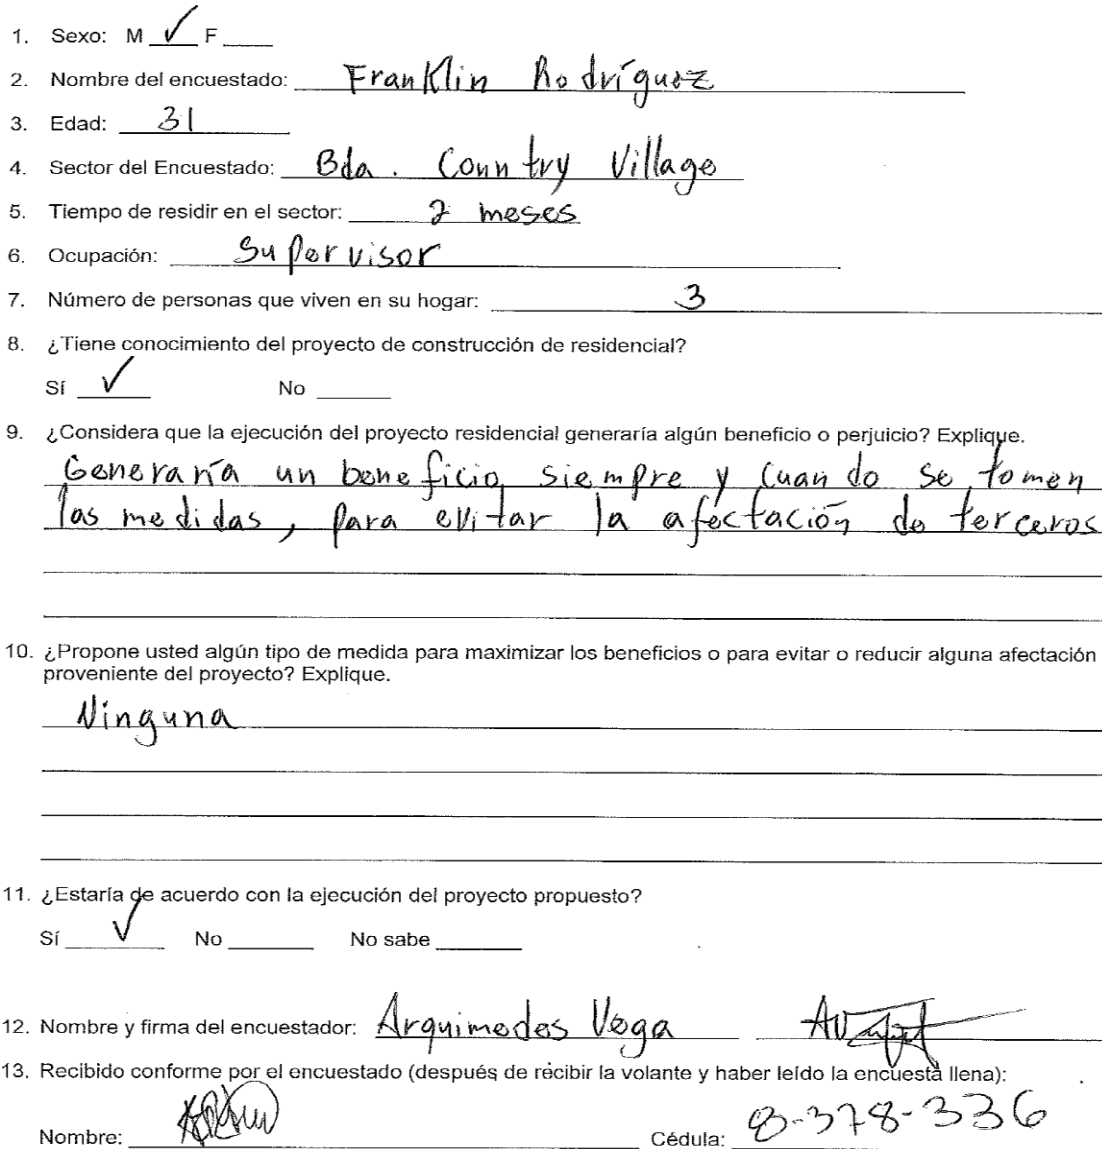 1. Sexo: M ✓ F ____
2. Nombre del encuestado: Franklin Rodríguez
3. Edad: 31
4. Sector del Encuestado: Bda. Country Village
5. Tiempo de residir en el sector: 2 meses
6. Ocupación: Supervisor
7. Número de personas que viven en su hogar: 3
8. ¿Tiene conocimiento del proyecto de construcción de residencial?
Sí ✓ No ____
9. ¿Considera que la ejecución del proyecto residencial generaría algún beneficio o perjuicio? Explique.
Generaría un beneficio siempre y cuando se tomen
las medidas, para evitar la afectación de terceros
10. ¿Propone usted algún tipo de medida para maximizar los beneficios o para evitar o reducir alguna afectación
proveniente del proyecto? Explique.
Ninguna
11. ¿Estaría de acuerdo con la ejecución del proyecto propuesto?
Sí ✓ No ____ No sabe ____
12. Nombre y firma del encuestador: Arquimedes Vega
13. Recibido conforme por el encuestado (después de recibir la volante y haber leído la encuesta llena):
Nombre: ____ Cédula: 8-378-336